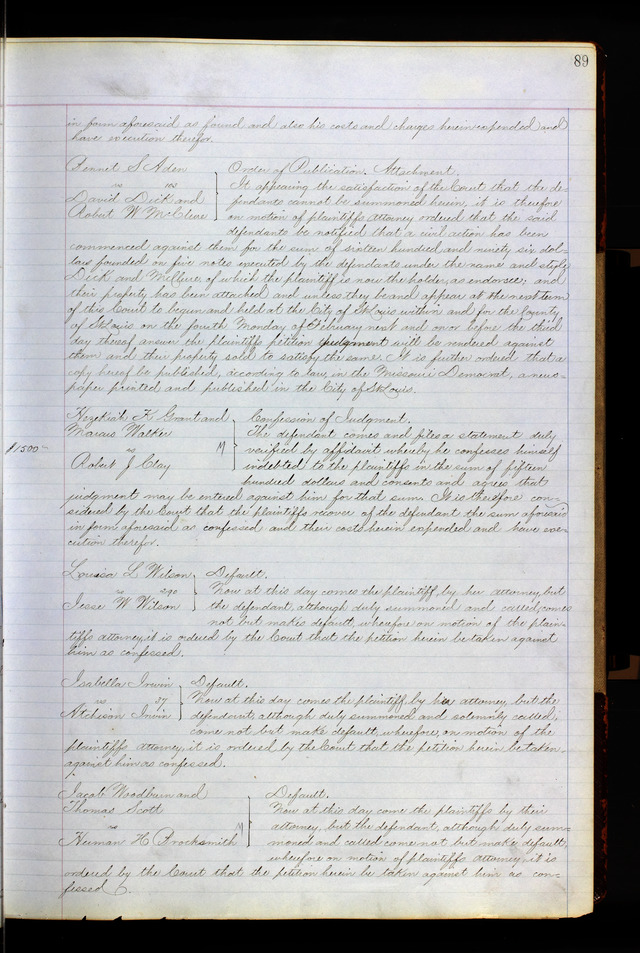 89
in form aforesaid as found and also his costs and charges herein expended and
have execution therefor.
Bonnet S Aden
vs
David Dick and
Robert W McClure
Order of Publication, Attachment.
It appearing the satisfaction of the Court that the de-
fendants cannot be summoned herein, it is therefore
on motion of plaintiffs attorney ordered that the said
defendants be notified that a civil action has been
commenced against them for the sum of sixteen hundred and ninety six dol-
lars founded on five notes executed by the defendants under the name and style
Dick and McClure, of which the plaintiff is now the holder, as endorsee; and
their property has been attached and unless they be and appear at the next term
of this Court to begun and held at the City of St Louis within and for the County
of St Louis on the fourth Monday of February next and on or before the third
day thereof answer the plaintiffs petition judgment will be rendered against
them and their property sold to satisfy the same. It is further ordered that a
copy hereof be published, according to law, in the Missouri Democrat, a news-
paper printed and published in the City of St Louis.
Hezekiah K Grant and
Marcus Walker
vs M
Robert J Clay
$1500-
Confession of Judgment.
The defendant comes and files a statement duly
verified by affidavit whereby he confesses himself
indebted to the plaintiffs in the sum of fifteen
hundred dollars and consents and agrees that
judgment may be entered against him for that sum. It is therefore con-
sidered by the Court that the plaintiffs recover of the defendant the sum aforesaid
in form aforesaid as confessed and their costs herein expended and have exe-
cution therefor.
Louisa L Wilson
vs
Jesse W Wilson
Default.
Now at this day comes the plaintiff, by her attorney, but
the defendant, although duly summoned and called, comes
not but makes default, wherefore on motion of the plain-
tiffs attorney, it is ordered by the Court that the petition herein be taken against
him as confessed.
Isabella Irwin
vs 37
Atchison Irwin
Default.
Now at this day comes the plaintiff, by her attorney, but the
defendant, although duly summoned and solemnly called,
come not but make default, wherefore, on motion of the
plaintiffs attorney, it is ordered by the Court that the petition herein be taken
against him as confessed.
Jacob Woodburn and
Thomas Scott
vs M
Herman H Brocksmith
Default.
Now at this day come the plaintiffs by their
attorney, but the defendant, although duly sum-
moned and called come not but make default,
wherefore on motion of plaintiffs attorney it is
ordered by the Court that the petition herein be taken against him as con-
fessed